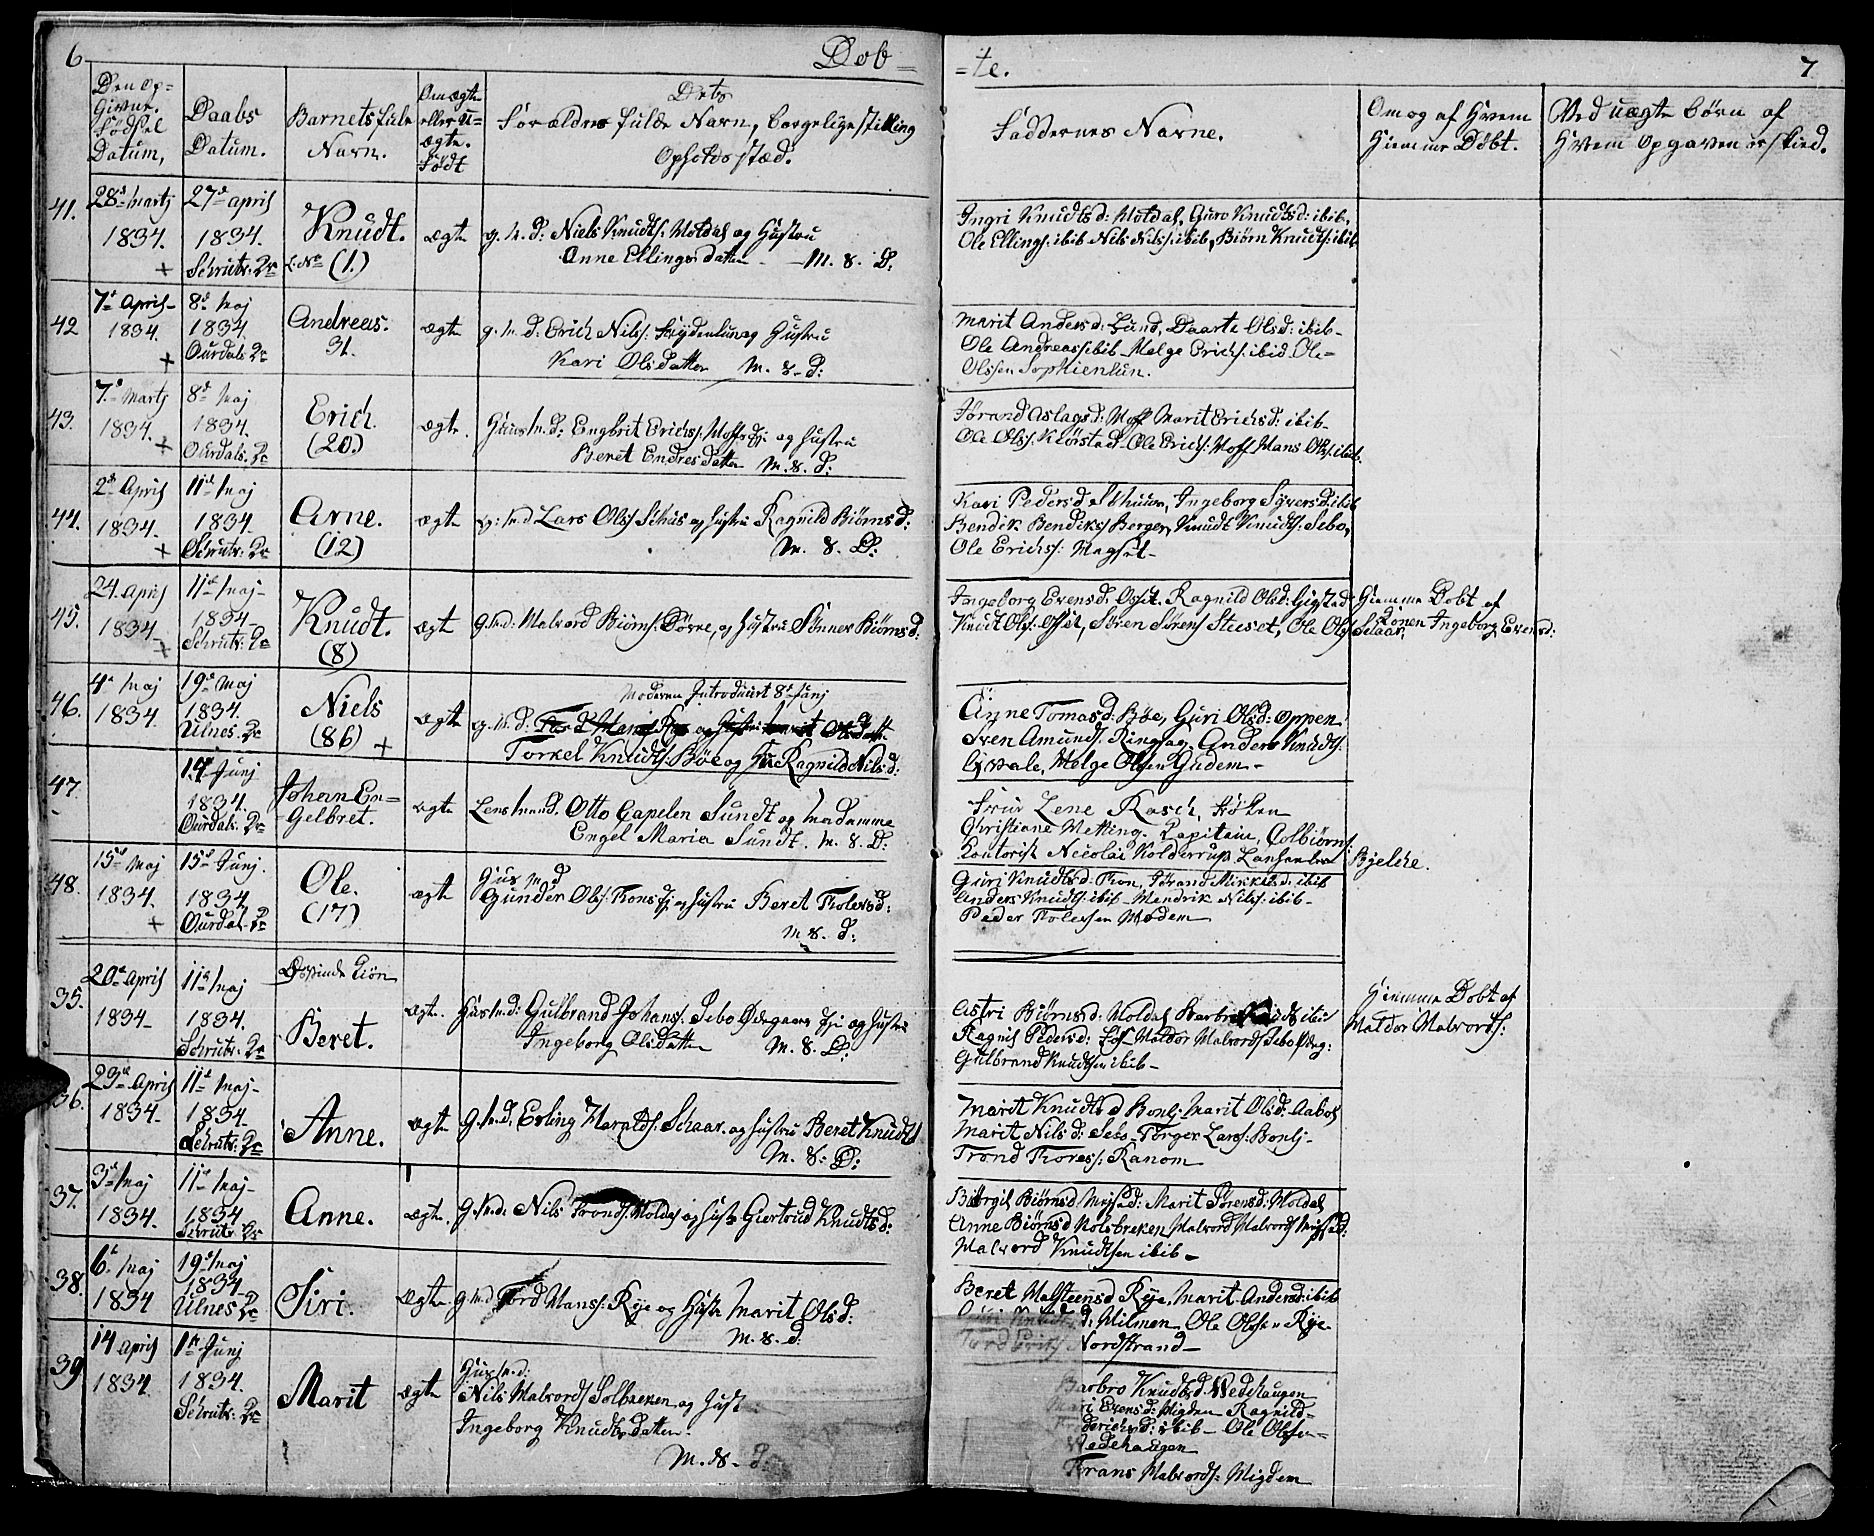 6
Døb=
=te.
7
Den Op=
Givne.
Fødsel
Datum,
Daabs
Datum.
Barnets fule
Navn.
Om ægte
eller U=
ægte.
Født
Dets
Forældres fulde Navn, borgelige stilling
Opholds stæd.
Faddernes Navne.
Om og af Hvem
Hiemme Døbt.
Ved uægte børn af
Hvem Opgaven er skied.
41.
28de Martj
1834.
+
27de april
1834.
Schrutv: Kr
Knudt.
(1.)
ægte
g. M. d: Niels Knudts: Moldal og Hustru
Anne Ellingsdatter — M. 8. D:
Ingri Knudtsd: Moldal, Guro Knudtsd: ibib,
Ole Ellings: ibib Nils Nilss: ibib, Biørn Knudts: ibib
42
7de April
1834.
+
8de Maj
1834
Ourdals Kr
Andreas.
31.
ægte
g. M. d: Erich Nilss: Frydenlun og Hustru
Kari Olsdatter M. 8. D:
Marit Andersd: Lund, Daarte Olsd: ibib
Ole Andreass ibib Helge Erichs: ibid Ole
Olssen Sophienlun.
43.
7de Martj
1834.
+
8de Maj
1834.
Ourdals. Kr
Erich
(20.)
ægte.
Huusm. d: Engbrit Erichs: Hoffsdj: og Hustru
Beret Endresdatter M. 8. D:
Jørand Aslagsd: Hoff Marit Erichsd: ibib
Ole Olss: Kiørstad Ole Erichs: Hoff Hans Olss: ibib.
44.
2de April
1834.
+
11te Maj
1834.
Schrutv: Kr
Arne.
(12)
ægte
g: M. d Lars Olss Sehus og Hustru Ragnild Biørnsd:
M. 8. D:
Kari Pedersd Skuure, Ingeborg Syversd: ibib
Bendik Bendikss Berger, Knudt Knudts: Sebo,
Ole Erichs: Magset
45.
24. April
1834
+
11te Maj
1834
Schrutv: Kr
Knudt.
(8)
ægte
g. M. d: Halvord Biørns: Dørre, og Hustru Sønner Biørnsd.
Ingeborg Evensd. Opset. Ragnild Olsd: Gigstad
Knudt Olss: Opset, Sören Sörens Steeset, Ole Olss Selaar.
Hiemme Døbt af
Konen Ingeborg Evensd:
46.
4de Maj
1834.
19de Maj
1834.
Ulnes. Kr
Niels
(86) +
ægte
Moderen Introduceret 8de Junj
g. M. d.
Torkel Knudts: Bøe og Ragnild Nilsd:
Anne Tomasd: Bøe, Guri Olsd: oppen
Sven Amunds. Ringsag Anders Knudts
Qvale, Helge Olssen Gudem
47.
14 Junj
1834.
Ourdals: Kr
Johan En=
gelbret.
ægte
Lensmand. Otto Capelen Sundt og Madamme
Engel Maria Sundt. M. 8. D:
Frue Lene Rasch, Frøken
Christiane Metting. Capitain, Colbiørns:
Kontorist Nicolai Kolderrup
Byelche.
48.
15de Maj
1834.
+
15de Junj.
1834
Ourdal. Kr
Ole.
(17)
ægte
Hus M. d
Gunder Olss: Frons dj: og Hustru Beret Tholevsd:
M 8. D:
Guri Knudtsd: Fron, Jørand Mikkelsd: ibib
Anders Knudts ibib Hendrik Nilss: ibib
Peder Tholevsen Modem
35.
20de April
1834
11te Maj
1834.
Schrutv: Kr
Qvinde Kiøn
Beret.
ægte.
Husm. d: Gulbrand Johans: Sebo Ødegaarsdji og Hustru
Ingeborg Olsdatter M. 8. D:
Astri Biørnsd: Moldal Barbro ibid
Ragnil Pedersd: Haldor Halvords Sebo Ødeg:
Gulbrand Knudtsen ibib
Hiemme Døbt af
Haldor Halvords:
36.
23de April
1834
11te Maj
1834
Schrutv: Kr
Anne.
ægte
g. M. d: Erling Haralds: Schaar. og Hustru Beret Knudts
M. 8. D:
Marit Knudtsd Bonlj Marit Olsd: Aabol
Marit Nilsd: Sebo Torger Larss: Bonlj
Trond Thoress: Ranom
37.
3de Maj
1834.
11te Maj
1834
Schrutv: Kr
Anne.
ægte.
g. M. d: Nils Tronds: Moldal og Hustr Giertrud Knudtsd:
Biørgit Biørnsd Magsed: Marit Sørensd: Moldal
Anne Biørnsd Holsbrekken Halvord Halvords Migsed:
Halvord Knudtsen ibib
38.
6de Maj
1834
19de Maj
1834
Ulnes Kr
Siri.
ægte
g. M. d Tord Hanss: Rye og Hustr Marit Olsd:
M. 8. D:
Beret Halsteensd Rye, Marit Andersd: ibib
d: Hilmen Ole Olssen Rye
Tord Erichs Nordstrand
39
14 April
1834
1te Junj
1834.
Schrutv: Kr
Marit
ægte
Husm. d:
Nils Halvords Solbrekken og Hust
Ingeborg Knudtsdatter.
M. 8. D.
Barbro Knudtsd. Wedehaugen
Mari Evensd: Migden Ragnild
Frederichsd: ibib Ole Olssen
Wedehaugen
Frans Halvords: Migdem